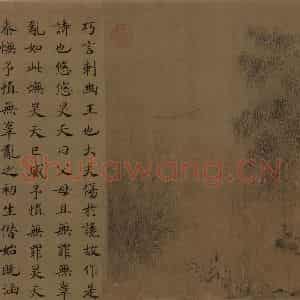 巧言刺幽王也大夫傷於讒故作是
詩也悠悠昊天曰父母且無罪無辜
亂如此憮昊天已威予慎無罪昊天
泰憮予慎無辜亂之初生僭始既涵
Shufawang.CN